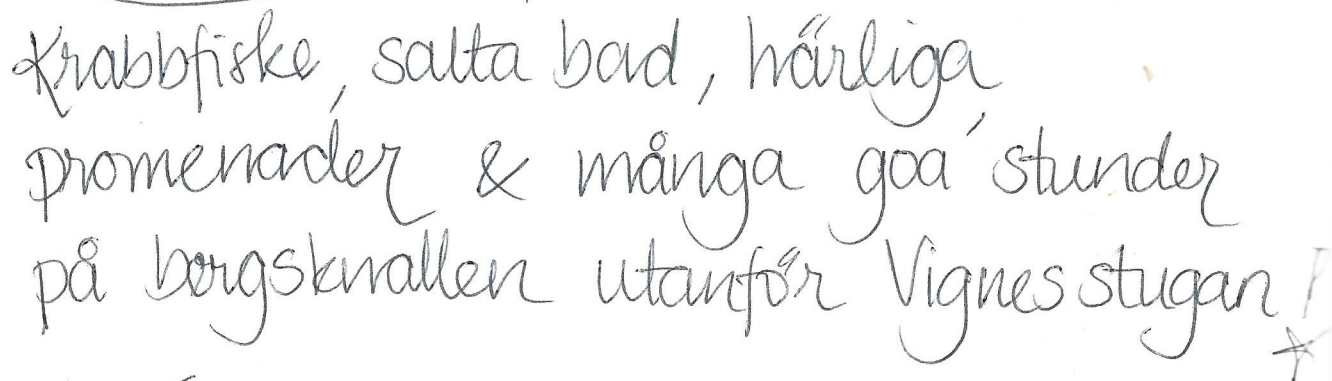 Krabbfiske, salta bad, härliga
promenader & många goa' stunder
på bergsknallen utanför Vignesstugan!